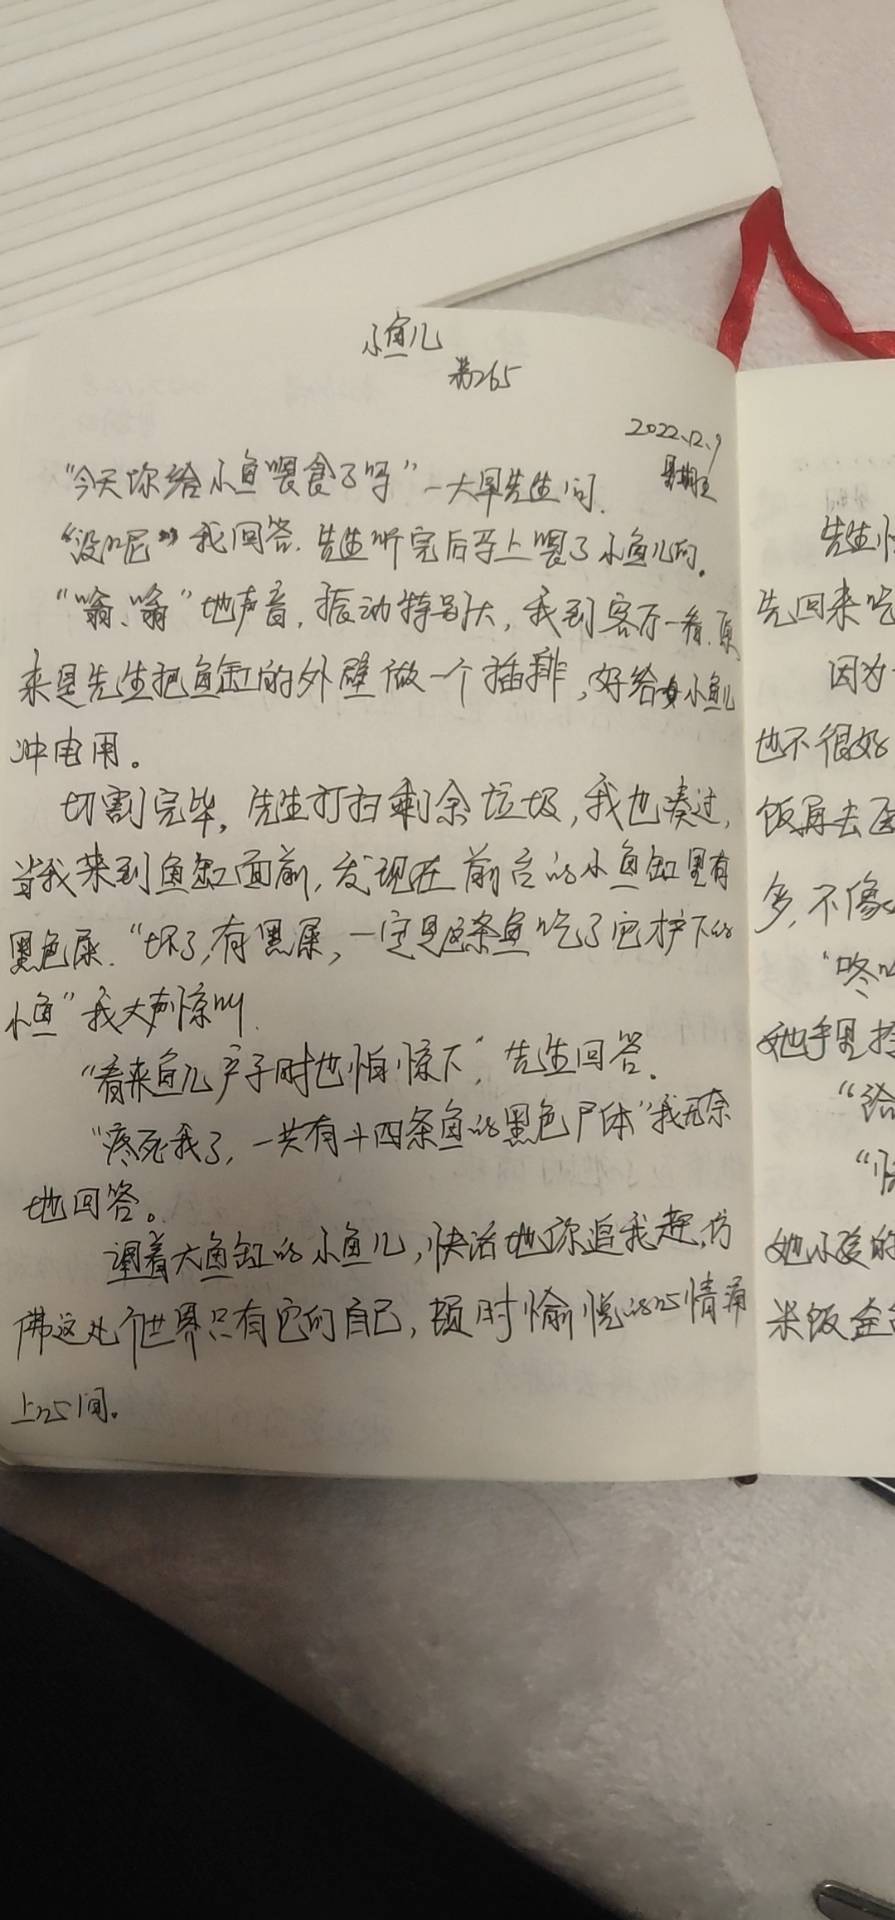 小鱼儿
第265
2022.12.9
星期五
“今天你给小鱼喂食了吗”一大早先生问.
“没呢”我回答.先生听完后马上喂了小鱼儿们.
“嗡、嗡”地声音,振动特别大,我到客厅一看,原
来是先生把鱼缸的外壁做一个插排,好给小鱼儿
冲电用。
切割完毕,先生打扫剩余垃圾,我也凑过,
当我来到鱼缸面前,发现在前台的小鱼缸里有
黑色尿.“坏了,有黑屎,一定是这条鱼吃了它护下的
小鱼”我大声惊叫.
“看来鱼儿产子时也怕惊下”,先生回答.
“疼死我了,一共有十四条鱼的黑色尸体”我无奈
地回答。
望着大鱼缸的小鱼儿,快活地你追我赶,仿
佛这个世界只有它们自己,顿时愉悦的心情涌
上心间。
先生
先回来吃
因为
也不很好
饭再去医
多,不像
“咚
她手里
“给
她小孩的
米饭